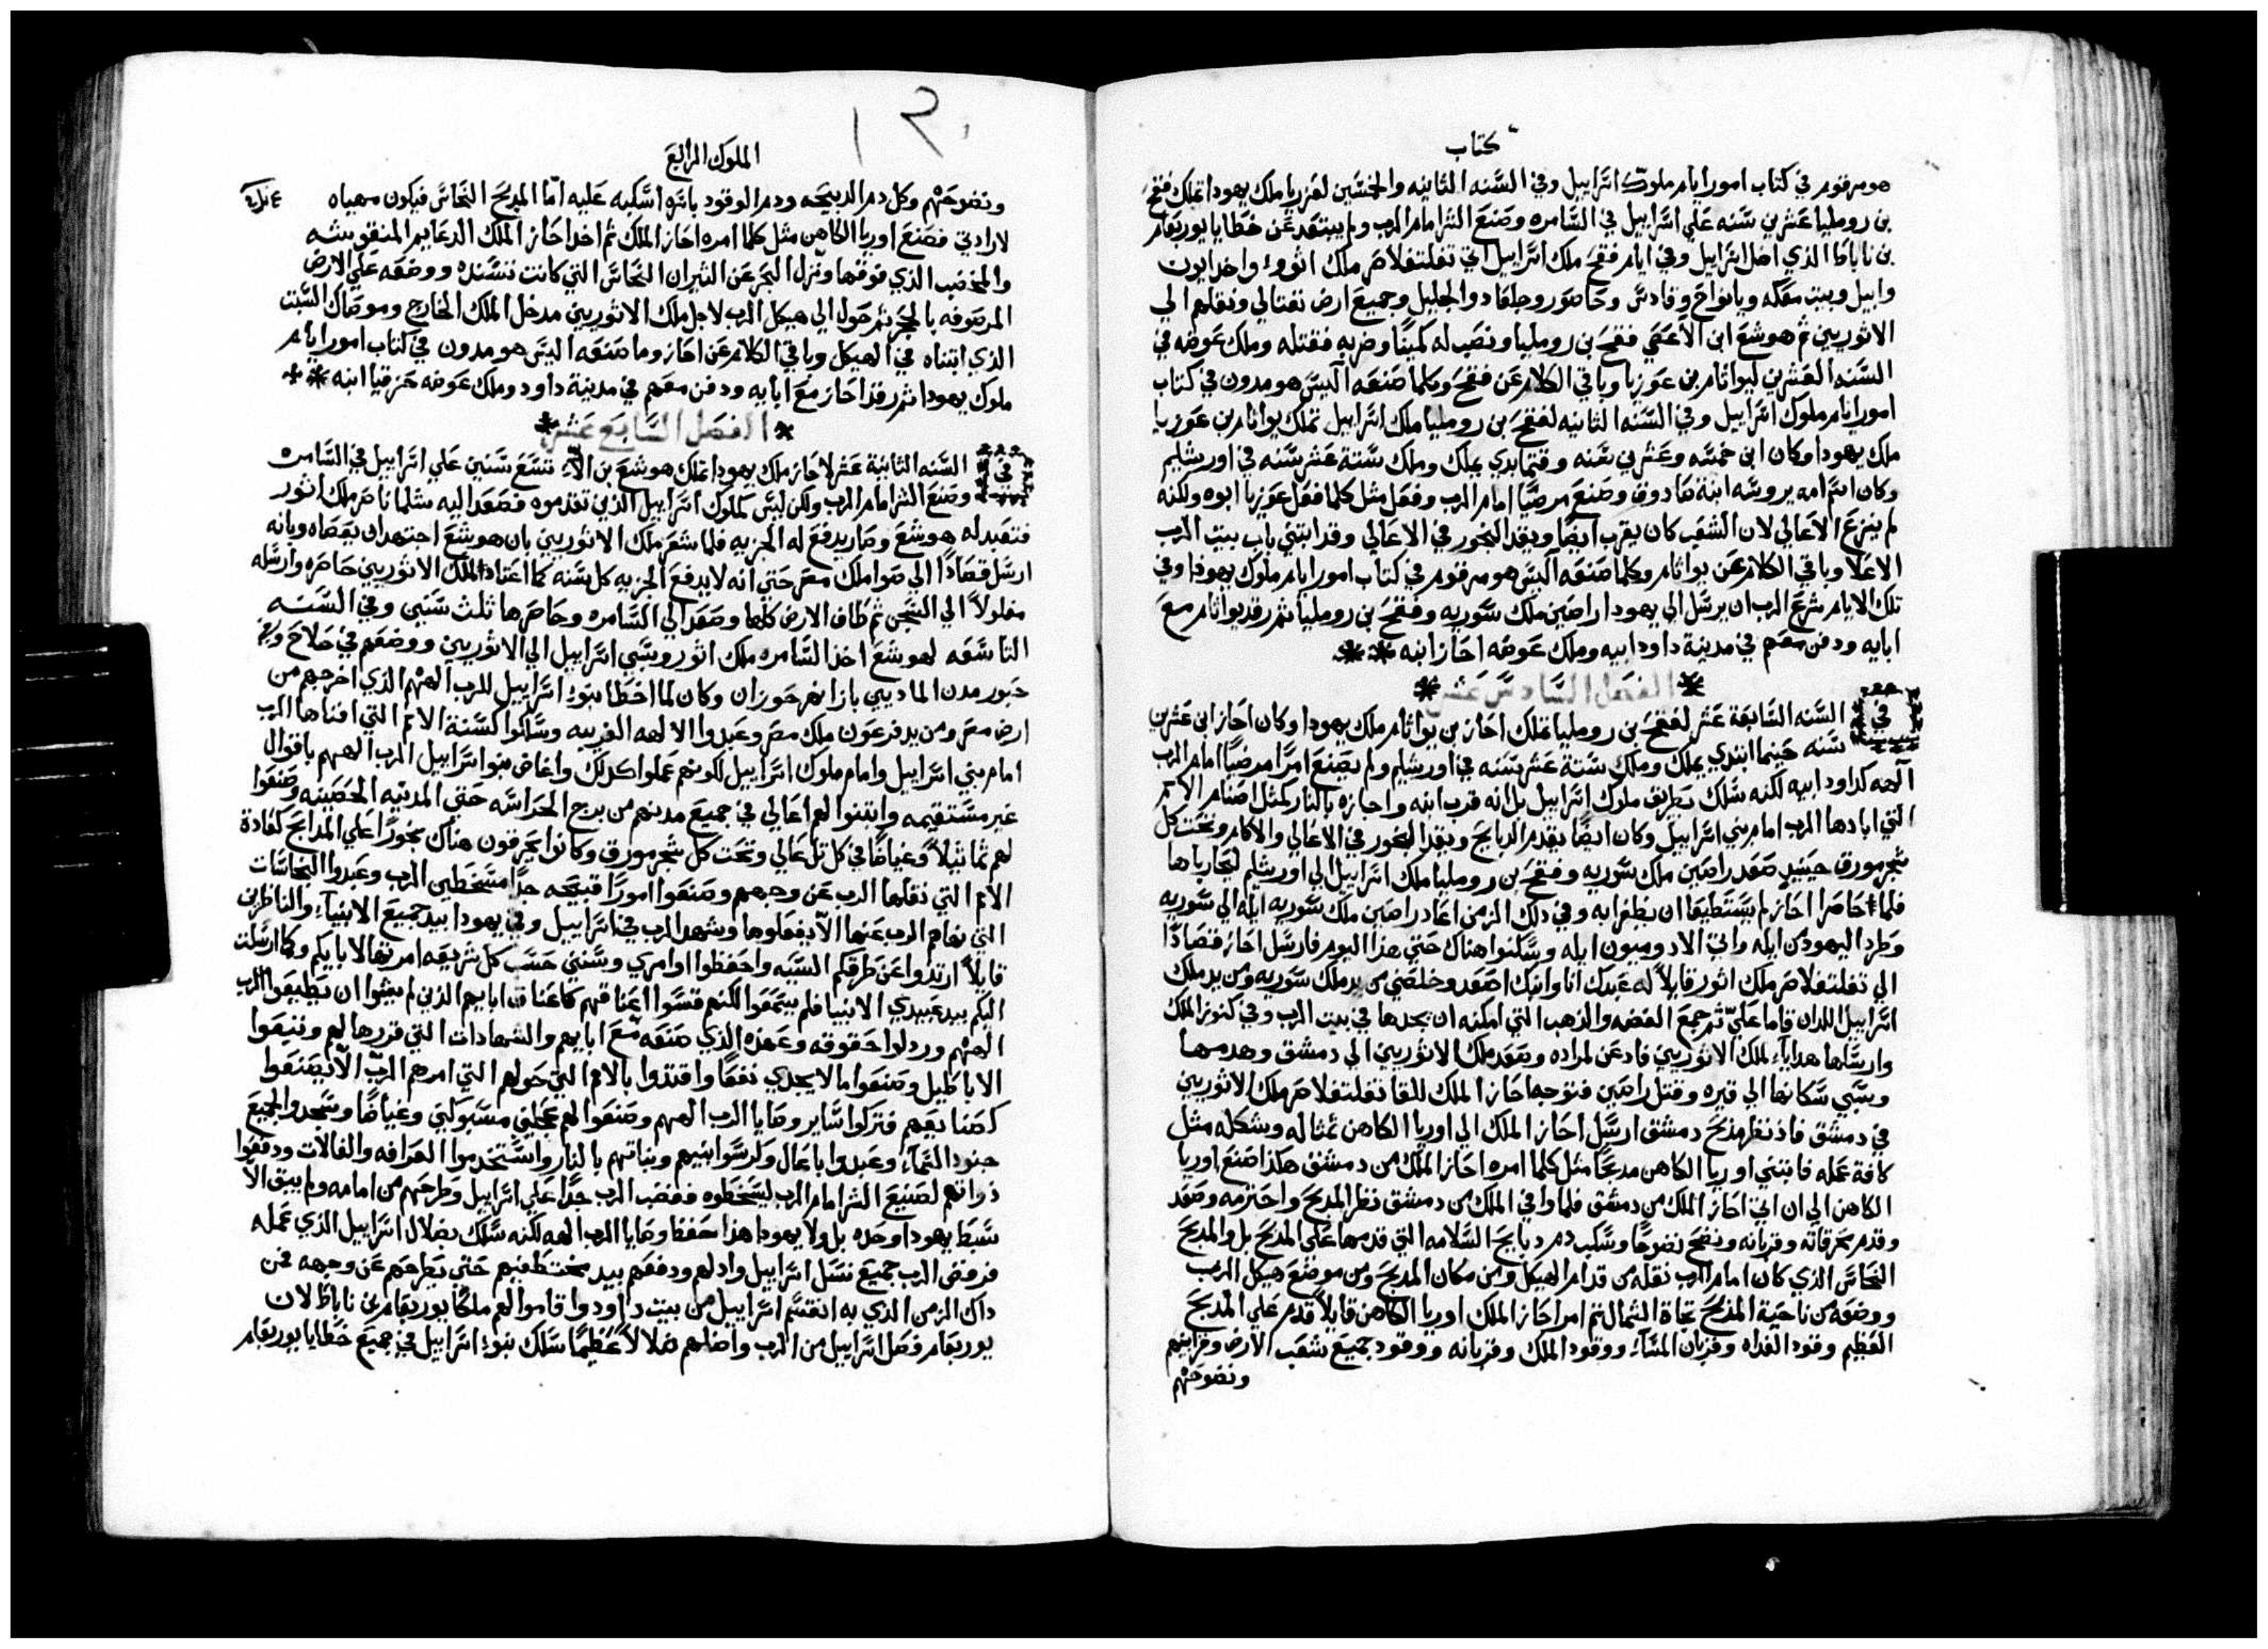 كتاب
هو مرقوم في كتاب امور ايام ملوك اسراييل وفي السنه الثانيه والخمسين لعزريا ملك يهودا تملك فقح
بن روميليا عشرين سنه علي اسراييل في السامره وصنع الشر امام الرب ولم يبتعد عن خطايا يوربعام
بن ناباط الذي اضل اسراييل وفي ايام فقح ملك اسراييل اتي تغلتفلاصر ملك اثور واخد ايون
وابيل وبيت معكه ويانواح وقادس وحاصور وجلعاد والجليل وجميع ارض نفتالي ونقلهم الي
الاثوريين ثم هوشع ابن الا عصي فقح بن روميليا ونصب له كمينًا وضربه فقتله وملك عوضه في
السنه العشرين ليواثام بن عوزيا وباقي الكلام عن فقح وكلما صنعه اليس هو مدون في كتاب
امور ايام ملوك اسراييل وفي السنه الثانيه لفقح بن روميليا ملك اسراييل تملك يواثام بن عوزيا
ملك يهودا وكان ابن خمسه وعشرين سنه وقتما بدي يملك وملك ستة عشر سنه في اورشليم
وكان اسم امه يروسه ابنة صادوق وصنع مرضيًا امام الرب وفعل مثل كلما فعل عوزيا ابوه ولكنه
لم ينزع الاعالي لان الشعب كان يقرب ايضًا ويقد البخور في الاعالي وقد ابتني باب بيت الرب
الاعلا وباقي الكلام عن يواثام وكلما صنعه اليس هو مرقوم في كتاب امور ايام ملوك يهودا وفي
تلك الايام شرع الرب ان يرسل الي يهودا راصين ملك سوريه وفقح بن روميليا ثم رقد يواثام مع
ابايه ودفن معهم في مدينة داود ابيه وملك عوضه احاز ابنه
الفصل السادس عشر
في السنه السابعة عشر لفقح بن روميليا تملك احاز بن يواثام ملك يهودا وكان احاز ابن عشرين
سنه حينما ابتدي يملك وملك ستة عشر سنه في اورشليم ولم يصنع امرًا مرضيًا امام الرب
آلهه كداود ابيه لكنه سلك بطريق ملوك اسراييل بل انه قرب ابنه واجازه بالنار كمثل اصنام الامم
التي ابادها الرب امام بني اسراييل وكان ايضًا يقدم الدبايح ويقد البخور في الاعالي والاكام وتحت كل
شجر مورق حينيدٍ صعد راصين ملك سوريه وفقح بن روميليا ملك اسراييل الي اورشليم ليحارباها
فلما حاصرا احاز لم يستطيعا ان يظفرا به وفي دلك الزمن اعاد راصين ملك سوريه ايله الي سوريه
وطرد اليهود من ايله واتي الادوميون ايله وسكنوا هناك حتي هدا اليوم فارسل احاز قصادًا
الي تغلتفلاصر ملك اثور قايلاً له عبدك انا وابنك اصعد وخلصني من يد ملك سوريه ومن يد ملك
اسراييل اللدان قاما عليّ ثم جمع الفضه والدهب التي امكنه ان يجدها في بيت الرب وفي كنوز الملك
وارسلها هداياء لملك الاثوريين فادعن لمراده وصعد ملك الاثوريين الي دمشق وهدمها
وسبي سكانها الي قيره وقتل راصين فتوجه احاز الملك للقا تغلتفلاصر ملك الاثوريين
في دمشق فاذ نظر مدبح دمشق ارسل احاز الملك الي اوريا الكاهن تمثاله وشكله مثل
كافة عمله فابتني اوريا الكاهن مدبحًا مثل كلما امره احاز الملك من دمشق هكدا صنع اوريا
الكاهن الي ان اتي احاز الملك من دمشق فلما وافي الملك من دمشق نظر المدبح واحترمه وصعد
وقدم محرقاته وقربانه ونضح نضوحًا وسكب دم دبايح السلامه التي قدمها علي المدبح بل والمدبح
النحاس الذي كان امام الرب نقله من قدام الهيكل ومن مكان المدبح ومن موضع هيكل الرب
ووضعه من ناحية المدبح تجاة الشمال ثم امر احاز الملك اوريا الكاهن قايلاً قدم علي المدبح
العظيم وقود الغداه وقربان المساء ووقود الملك وقربانه ووقود جميع شعب الارض وقرابينهم
ونضوحهم
١٢
الملوك الرابع
ونضوحهم وكل دم الدبيحه ودم الوقود باسره اسكبه عليه امّا المدبح النحاس فيكون مهياه
لارادتي فصنع اوريا الكاهن مثل كلما امره احاز الملك ثم اخد احاز الملك الدعايم المنقوشه
والمخضب الذي فوقها ونزل البحر عن الثيران النحاس التي كانت تسنده ووضعه علي الارض
المرصوفه بالحجر ثم حول الي هيكل الرب لاجل ملك الاثوريين مدخل الملك الخارج وموضاك السبت
الذي ابتناه في الهيكل وباقي الكلام عن احاز وما صنعه اليس هو مدون في كتاب امور ايام
ملوك يهودا ثم رقد احاز مع ابايه ودفن معهم في مدينة داود وملك عوضه حزقيا ابنه
الفصل السابع عشر
في السنه الثانية عشر لاحاز ملك يهودا تملك هوشع بن الاء تسع سنين علي اسراييل في السامره
وصنع الشر امام الرب ولكن ليس كملوك اسراييل الذين تقدموه فصعد اليه سلماناصر ملك اثور
فتعبد له هوشع وصار يدفع له الجزيه فلما شعر ملك الاثوريين بان هوشع اجتهد ان يعصاه وبانه
ارسل قصادًا الي صوا ملك مصر حتي انه لا يدفع الجزيه كل سنه كما اعتاد لملك الاثوريين حاصره وارسله
مغلولاً الي السجن ثم طاف الارض كلها وصعد الي السامره وحاصرها ثلث سنين وفي السنه
التاسعه لهوشع اخد السامره ملك اثور وسبي اسراييل الي الاثوريين ووضعهم في حلاح وفي
حبور مدن الماديين بازا نهر حوزان وكان لما اخطا بنوء اسراييل للرب الههم الذي اخرجهم من
ارض مصر ومن يد فرعون ملك مصر وعبدوا الالهه الغريبه وسلكوا كسنة الامم التي افناها الرب
امام بني اسراييل وامام ملوك اسراييل لكونهم عملوا كدلك واغاض بنوا اسراييل الرب الههم باقوال
غير مستقيمه وابتنوا لهم اعالي في جميع مدنهم من برج الحراسه حتي المدينه الحصينه وصنعوا
لهم تماثيلاً وغياضًا في كل تل عالي وتحت كل شجر مورق وكانوا يحرقون هناك بخورًا علي المدابح كعادة
الامم التي نقلها الرب عن وجههم وصنعوا امورًا قبيحه جدًا مسخطين الرب وعبدوا النجاسات
التي نهاهم الرب عنها الاّ يفعلوها وشهد الرب في اسراييل وفي يهودا بيد جميع الانبياء والناظرين
قايلاً ارتدوا عن طرقكم السيه واحفظوا اوامري وسنني حسب كل شريعه امرتها لابايكم وكما ارسلت
اليكم بيد عبيدي الانبيا فلم يسمعوا لكنهم قسوا اعناقهم كاعناق ابايهم الذين لم يشوا ان يطيعوا الرب
الههم وردلوا حقوقه وعهده الذي صنعه مع ابايهم والشهادات التي قررها لهم وتبعوا
الاباطيل وصنعوا ما لا يجدي نفعًا واقتدوا بالامم التي حولهم التي امرهم الرب الاّ يصنعوا
كصنايعهم فتركوا ساير وصايا الرب الههم وصنعوا لهم عجلين مسبوكين وغياضًا وسجدوا لجميع
جنود السماء وعبدوا باعال وكرسوا ابنيهم وبناتهم بالنار واستخدموا العرافه والفالات ودفعوا
ذواتهم لصنيع الشر امام الرب ليسخطوه فغضب الرب جدًا علي اسراييل وطرحهم من امامه ولم يبق الا
سبط يهودا وحده بل ولا يهودا هدا حفظ وصايا الرب الهه لكنه سلك بضلال اسراييل الذي عمله
فرفض الرب جميع نسل اسراييل وادلهم ودفعهم بيد مختطفيهم حتي يطرحهم عن وجهه من
داك الزمن الذي به انقسم اسراييل من بيت داود واقاموا لهم ملكًا يوربعام بن ناباط لان
يوربعام فصل اسراييل من الرب واضلهم ضلالاً عظيمًا سلك بنوء اسراييل في جميع خطايا يوربعام